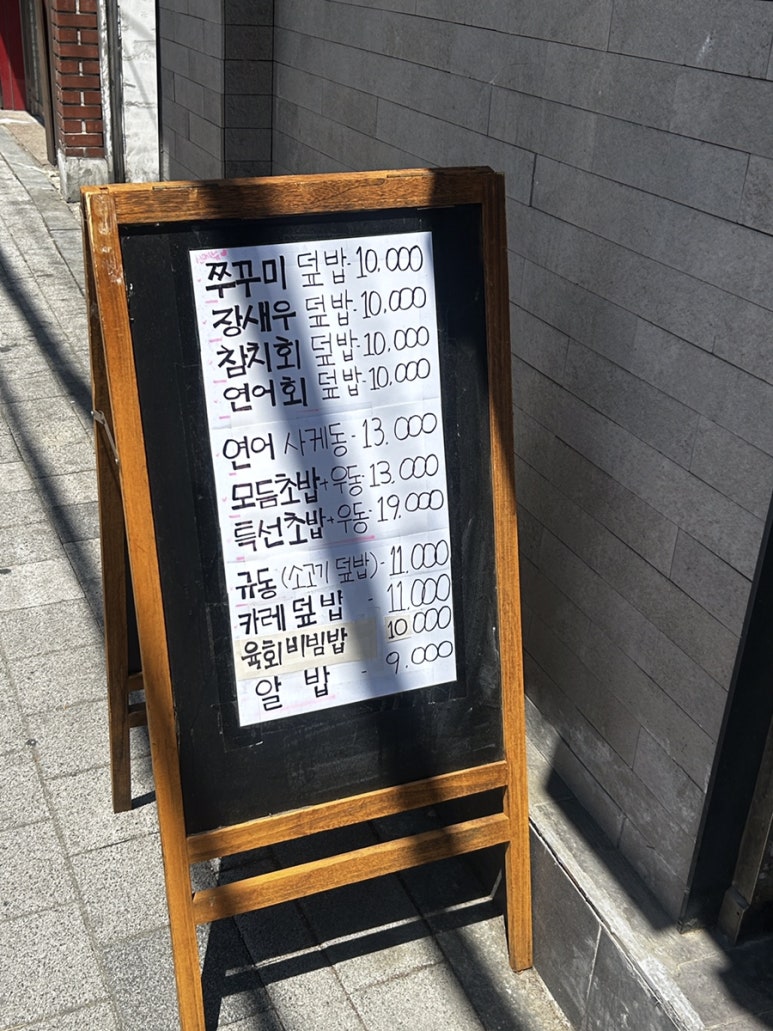 쭈꾸미 덮밥-10.000
장새우 덮밥-10.000
참치회 덮밥-10.000
연어회 덮밥-10.000
연어 사케동-13.000
모듬초밥+우동-13.000
특선초밥+우동-19.000
규동(소고기 덮밥)-11.000
카레 덮밥 - 11.000
육회비빔밥 10000
알 밥 - 9.000